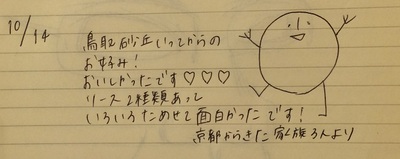 10/14
鳥取砂丘いってからの
お好み!
おいしかったです♡♡♡
ソース2種類あって
いろいろためせて面白かったです!
京都からきた家族3人より